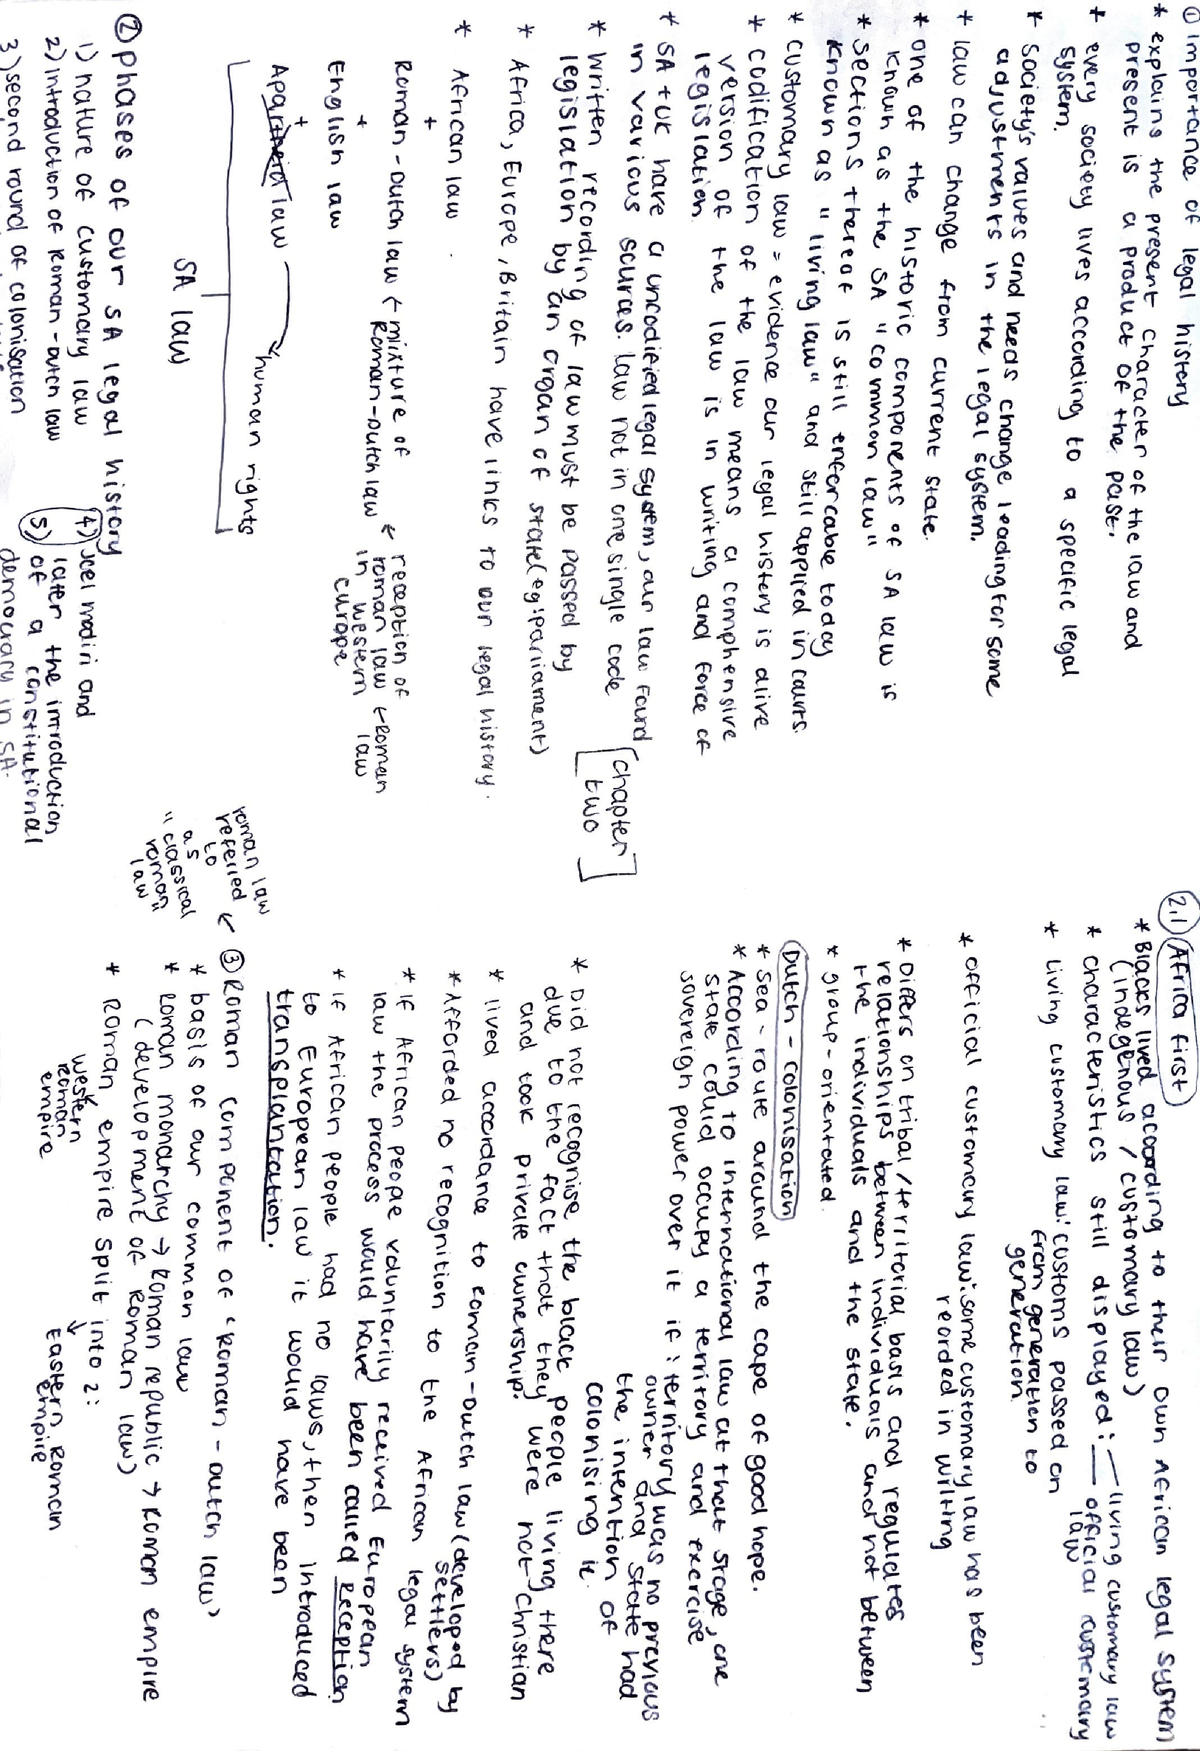 ① importance of legal history
* explains the present character of the law and
present is a product of the past.
+ every society lives according to a specific legal
system.
* society's values and needs change leading for some
adjustments in the legal system.
+ law can change from current state.
* one of the historic components of SA law is
known as the SA "common law"
* sections thereof is still enforcable today
known as "living law" and still applied in courts.
* customary law = evidence our legal history is alive
+ codification of the law means a comphensive
version of the law is in writing and force of
legislation.
* SA + UK have a uncodified legal system, our law found
in various sources. law not in one single code
* written recording of law must be passed by
legislation by an organ of state (eg: parliament)
[chapter
two]
* Africa, Europe, Britain have links to our legal history.
* African law.
+
Roman-dutch law ← mixture of
Roman-dutch law
← reception of
roman law ← Roman
in western law
europe
+
English law
+
Apartheid law → human rights
SA law
② phases of our SA legal history
1) nature of customary law
2) introduction of Roman-dutch law
3) second round of colonisation
4) Joel modiri and
5) later the introduction
of a constitutional
democracy in SA.
2.1 Africa first
* Blacks lived according to their own African legal system
(indegenous / customary law)
* characteristics still displayed: — living customary law
— official customary
law
* living customary law: customs passed on
from generation to
generation.
* official customary law: some customary law has been
reorded in writing
* Differs on tribal/territorial basis and regulates
relationships between individuals
the individuals and the state. and not between
* group-orientated.
Dutch-colonisation
* sea-route around the cape of good hope.
* According to international law at that stage, one
state could occupy a territory and exercise
sovereign power over it if: territory was no previous
owner and state had
the intention of
colonising it.
* Did not recognise the black people living there
due to the fact that they were not christian
and took private ownership.
* lived accordance to roman-dutch law (developed by
settlers)
* Afforded no recognition to the African legal system
* if African people voluntarily received European
law the process would have been called Reception
* if African people had no laws, then introduced
to European law it would have been
transplantation.
③ Roman component of 'Roman-dutch law'
roman law
referred
to
as
"classical
roman"
law"
* basis of our common law
* Roman monarchy → Roman republic → Roman empire
(development of Roman law)
* Roman empire split into 2:
western
roman
empire
Eastern Roman
empire